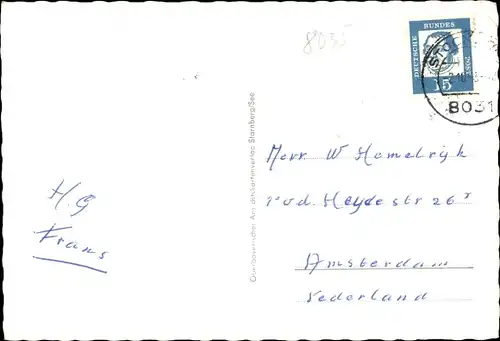 8035
DEUTSCHE
BUNDES
POST
15
8031
H.G
Frans
Oberbayerischer Ansichtskartenverlag Starnberg/See
Herr W Hamelryk
v.d. Heydestr 26
Amsterdam
Nederland